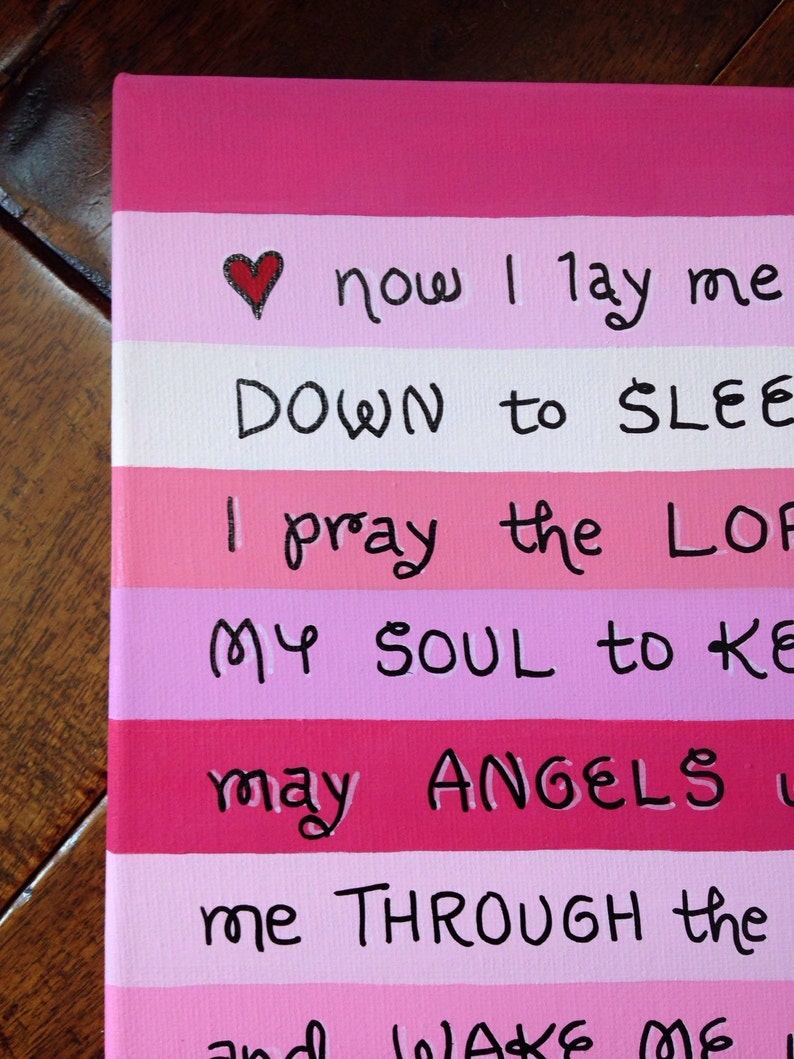 now I lay me
DOWN to SLEE
I pray the LOR
MY SOUL to KE
may ANGELS
me THROUGH the
and WAKE ME